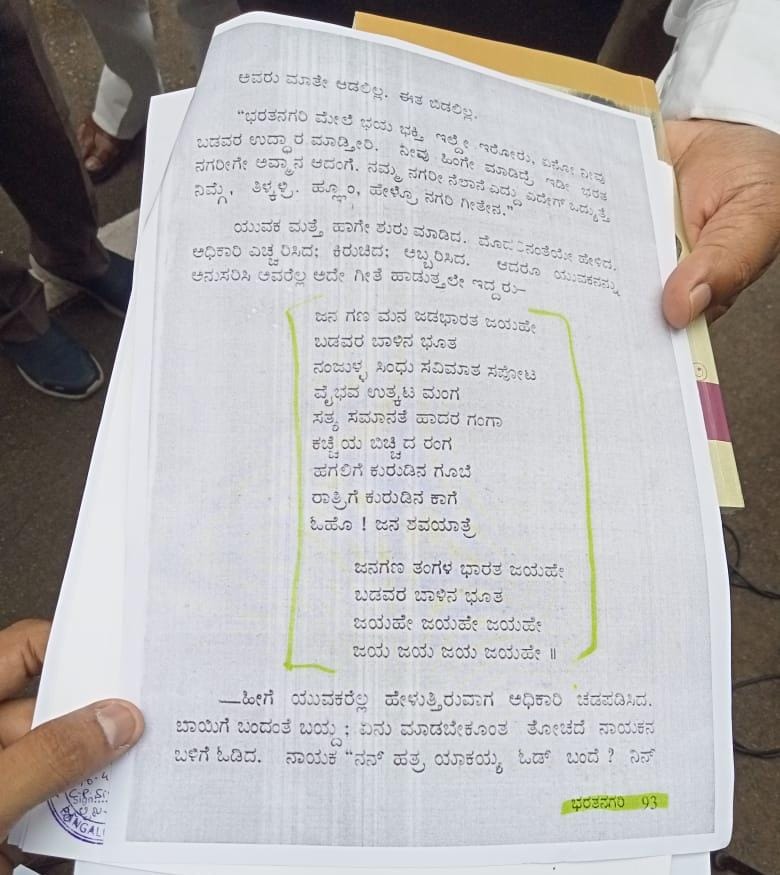 ಅವರು ಮಾತೇ ಆಡಲಿಲ್ಲ. ಈತ ಬಿಡಲಿಲ್ಲ.
"ಭರತನಗರಿ ಮೇಲೆ ಭಯ ಭಕ್ತಿ ಇಲ್ದೇ ಇರೋರು, ಏನೋ ನೀವು
ಬಡವರ ಉದ್ಧಾರ ಮಾಡ್ತೀರಿ. ನೀವು ಹಿಂಗೇ ಮಾಡಿದ್ರೆ ಇಡೀ ಭರತ
ನಗರೀಗೇ ಅವ್ಮಾನ ಆದಂಗೆ. ನಮ್ಮ ನಗರೀ ನೆಲಾನೆ ಎದ್ದು ಎದೇಗ್ ಒದ್ಮುತ್ತೆ
ನಿಮ್ಗೆ, ತಿಳ್ಕಳ್ರಿ. ಹ್ಲೂಂ, ಹೇಳ್ರೊ ನಗರಿ ಗೀತೇನ."
ಯುವಕ ಮತ್ತೆ ಹಾಗೇ ಶುರು ಮಾಡಿದ. ಮೊದಲಿನಂತೆಯೇ ಹೇಳಿದ.
ಅಧಿಕಾರಿ ಎಚ್ಚರಿಸಿದ; ಕಿರುಚಿದ; ಅಬ್ಬರಿಸಿದ. ಆದರೂ ಯುವಕನನ್ನು
ಅನುಸರಿಸಿ ಅವರೆಲ್ಲ ಅದೇ ಗೀತೆ ಹಾಡುತ್ತಲೇ ಇದ್ದರು–
ಜನ ಗಣ ಮನ ಜಡಭಾರತ ಜಯಹೇ
ಬಡವರ ಬಾಳಿನ ಭೂತ
ನಂಜುಳ್ಳ ಸಿಂಧು ಸವಿಮಾತ ಸಪೋಟ
ವೈಭವ ಉತ್ಕಟ ಮಂಗ
ಸತ್ಯ ಸಮಾನತೆ ಹಾದರ ಗಂಗಾ
ಕಚ್ಚೆಯ ಬಿಚ್ಚಿದ ರಂಗ
ಹಗಲಿಗೆ ಕುರುಡಿನ ಗೂಬೆ
ರಾತ್ರಿಗೆ ಕುರುಡಿನ ಕಾಗೆ
ಓಹೊ ! ಜನ ಶವಯಾತ್ರೆ
ಜನಗಣ ತಂಗಳ ಭಾರತ ಜಯಹೇ
ಬಡವರ ಬಾಳಿನ ಭೂತ
ಜಯಹೇ ಜಯಹೇ ಜಯಹೇ
ಜಯ ಜಯ ಜಯ ಜಯಹೇ ॥
—ಹೀಗೆ ಯುವಕರೆಲ್ಲ ಹೇಳುತ್ತಿರುವಾಗ ಅಧಿಕಾರಿ ಚಡಪಡಿಸಿದ.
ಬಾಯಿಗೆ ಬಂದಂತೆ ಬಯ್ದ; ಏನು ಮಾಡಬೇಕೂಂತ ತೋಚದೆ ನಾಯಕನ
ಬಳಿಗೆ ಓಡಿದ. ನಾಯಕ "ನನ್ ಹತ್ರ ಯಾಕಯ್ಯ ಓಡ್ ಬಂದೆ? ನಿನ್
ಭರತನಗರಿ 93